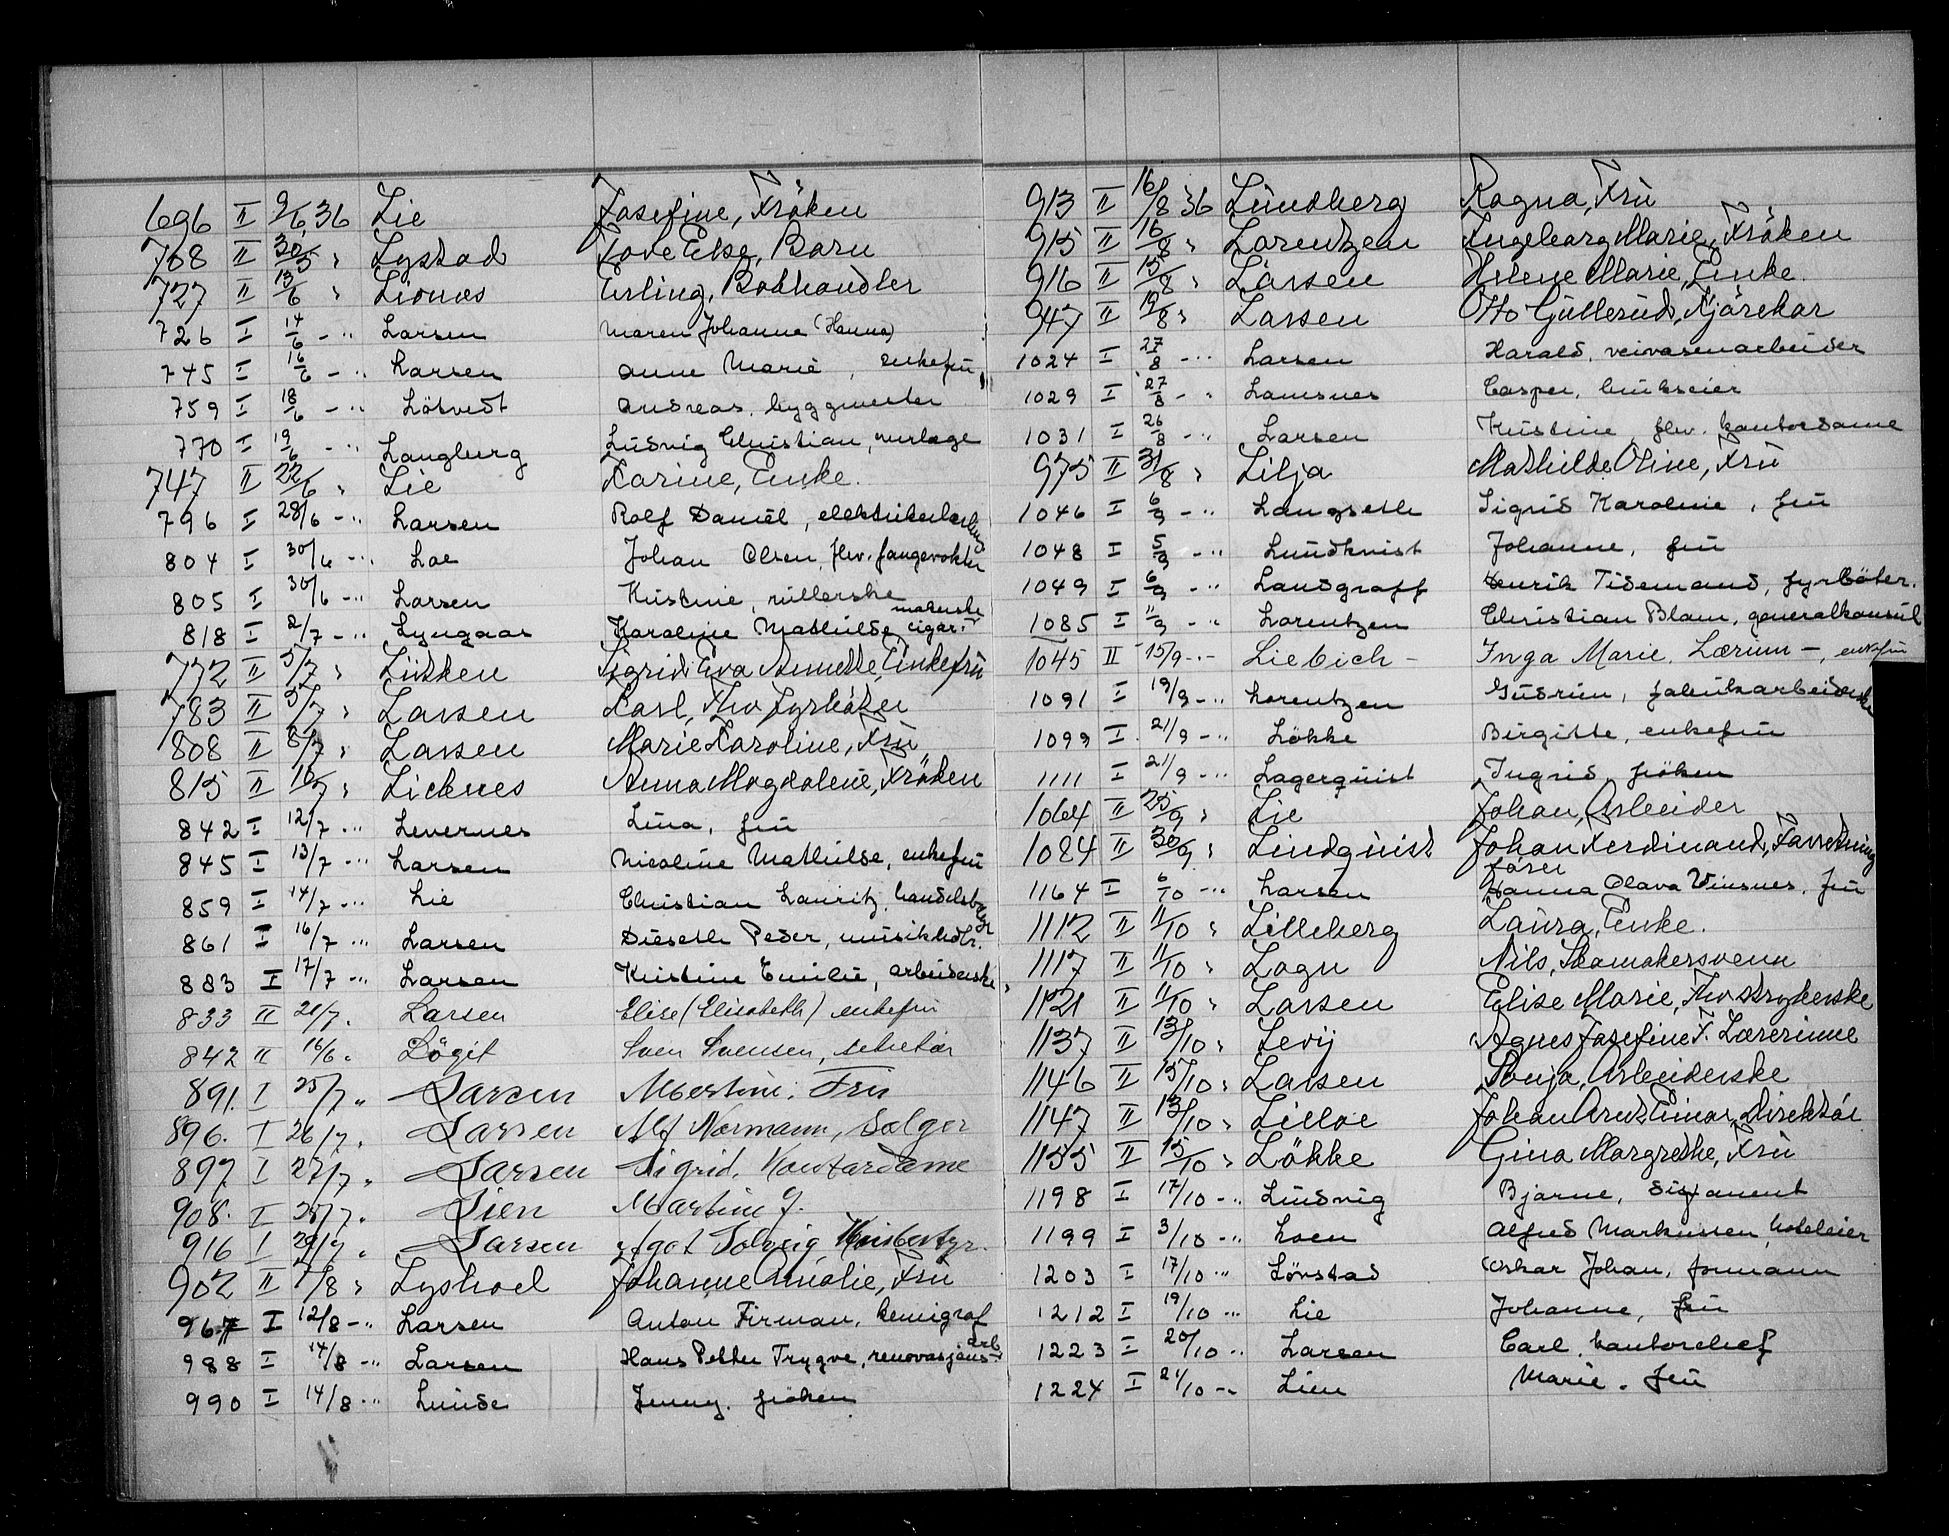 696 II 9/6 36 Lie Josefine, Fröken
768 II 30/5 " Lystad Tove Else, Barn
727 II 13/6 " Lionæs Erling, Bokhandler
726 I 14/6 - " Larsen Maren Johanne (Hanna)
745 I 16/6 - " Larsen Anne Marie, enkefru
759 I 18/6 - " Lötvedt Andreas, byggmester
770 I 19/6 - " Langberg Ludvig Christian,
747 II 22/6 " Lie Karine, Enke.
796 I 28/6 - " Larsen Rolf Daniel,
804 I 30/6 - " Loe Johan Olsen, fhv. fangevokter
805 I 30/6 - " Larsen Kristine, rullerske
818 I 2/7 - " Lyngaas Karoline Mathilde, cigar-makerske
772 II 5/7 " Lütken Sigrid Eva Annette, Enkefru
783 II 5/7 " Larsen Karl, Fhv Fyrböter
808 II 8/7 " Larsen Marie Karoline, Fru
815 II 10/7 " Lieknes Anna Magdalene, Fröken
842 I 12/7 - " Levernes Lina, fru
845 I 13/7 - " Larsen Nicoline Mathilde, enkefru
859 I 14/7 - " Lie Christian Lauritz,
861 I 16/7 - " Larsen Diseth Peder, musikhdlr.
883 I 17/7 - " Larsen Kristine Emilie, arbeiderske
833 II 21/7 " Larsen Elise (Elisabeth) enkefru
842 II 16/6 " Lögit Sven Svensen, sekretær
891. I 25/7 " Larsen Mertine. Fru
896. I 26/7 " Larsen Alf Normann, Selger
897 I 27/7 " Larsen Sigrid, Kontordame
908. I 25/7 " Lien Martine G.
916 I 29/7 " Larsen Agot Solveig, Husbestyr.
902 II 7/8 " Lyshoel Johanne Amalie, Fru
967 I 12/8 - " Larsen Anton Firman, kemigraf
988 I 14/8 - " Larsen Hans Petter Trygve, renovasjons-arb.
990 I 14/8 - " Lunde Jenny, fröken
913 II 16/8 36 Lundberg Ragna, Fru
915 II 16/8 " Lorentzen Ingeborg Marie, Fröken
916 II 15/8 " Larsen Helene Marie, Enke.
947 II 19/8 " Larsen Otto Gullerud, Kjörekar
1024 I 27/8 - " Larsen Harald, veivesenarbeider
1029 I 27/8 - " Lamsnes Casper, brukseier
1031 I 26/8 - " Larsen Kristine, fhv. kontordame
975 II 31/8 " Lilja Mathilde Oline, Fru
1046 I 6/9 - " Langseth Sigrid Karoline, fru
1048 I 5/9 - " Lundkvist Johanne, fru
1049 I 6/9 - " Landgraff Henrik Tidemand, fyrböter.
1085 I 11/9 - " Lorentzen Christian Blom, generalkonsul
1045 II 15/9 - " Liebich - Inga Marie, Lærum -, enkefru
1091 I 19/9 - " Lorentzen Gudrun, fabrikarbeiderske
1099 I 21/9 - " Lökke Birgitte, enkefru
1111 I 21/9 - " Lagerquist Ingrid, fröken
1064 II 25/9 " Lie Johan, Arbeider
1084 II 30/9 " Lindquist Johan Ferdinand, Forretning
1164 I 6/10 - " Larsen Hanna Olava Vinsnes, fru
1112 II 11/10 " Lilleberg Laura, Enke.
1117 II 11/10 " Logn Nils, Skomakersvenn
1121 II 11/10 " Larsen Elise Marie, Fhv strykerske
1137 II 13/10 " Levij Agnes Josefine F. Lærerinne
1146 II 15/10 " Larsen Sonja, Arbeiderske
1147 II 13/10 " Lilloe Johan Arnt Einar, Direktör
1155 II 15/10 " Lökke Gina Margrethe, Fru
1198 I 17/10 - " Ludvig Bjarne, disponent
1199 I 3/10 - " Loen Alfred Markussen, hoteleier
1203 I 17/10 " Lövstad Oskar Johan, formann
1212 I 19/10 - " Lie Johanne, fru
1223 I 20/10 - " Larsen Carl, kontorchef
1224 I 21/10 - " Lien Marie, fru